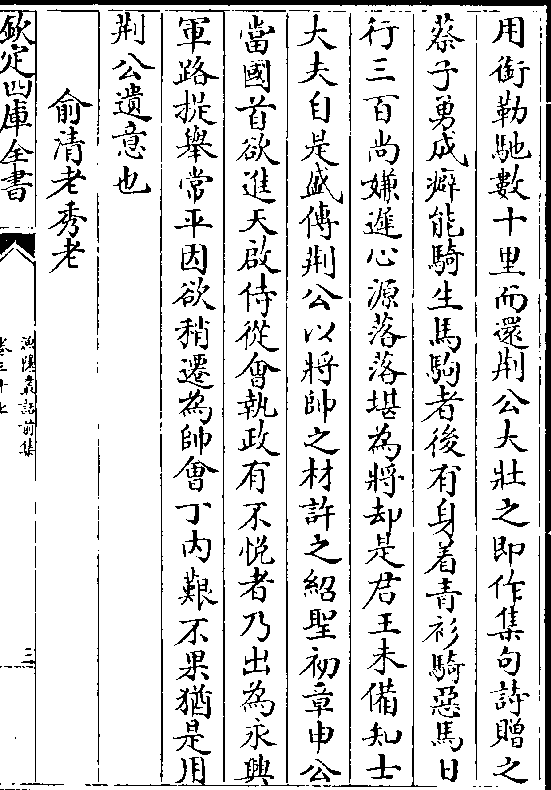 用銜勒馳數十里而還荆公大壯之即作集句詩贈之
蔡子勇成癖能騎生馬駒者後有身着青衫騎惡馬日
行三百尚嫌遲心源落落堪為將却是君王未備知士
大夫自是盛傳荆公以將帥之材許之紹聖初章申公
當國首欲進天啟侍從會執政有不悅者乃出為永興
軍路提舉常平因欲稍遷為帥會丁内艱不果猶是用
荆公遺意也
俞清老秀老
欽定四庫全書
漁隱叢話前集
卷三十七
三